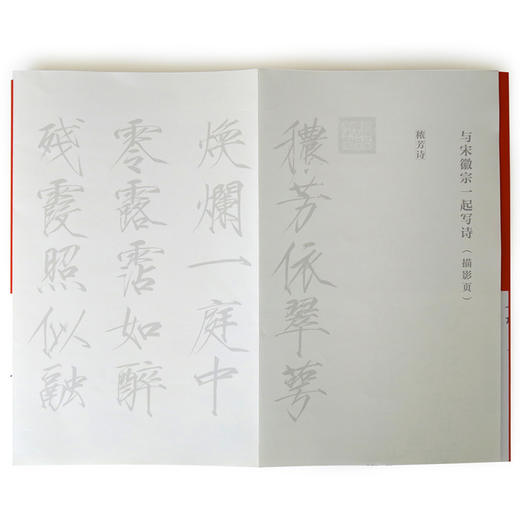 与宋徽宗一起写诗(描影页)
秾芳诗
穠芳依翠萼
煥爛一庭中
零露霑如醉
残霞照似融